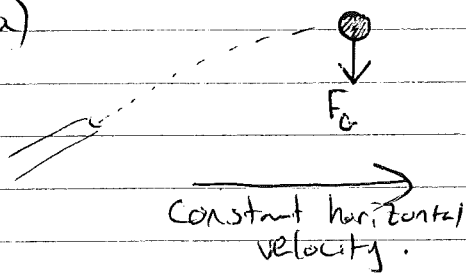 a)
FG
Constant horizontal
velocity.